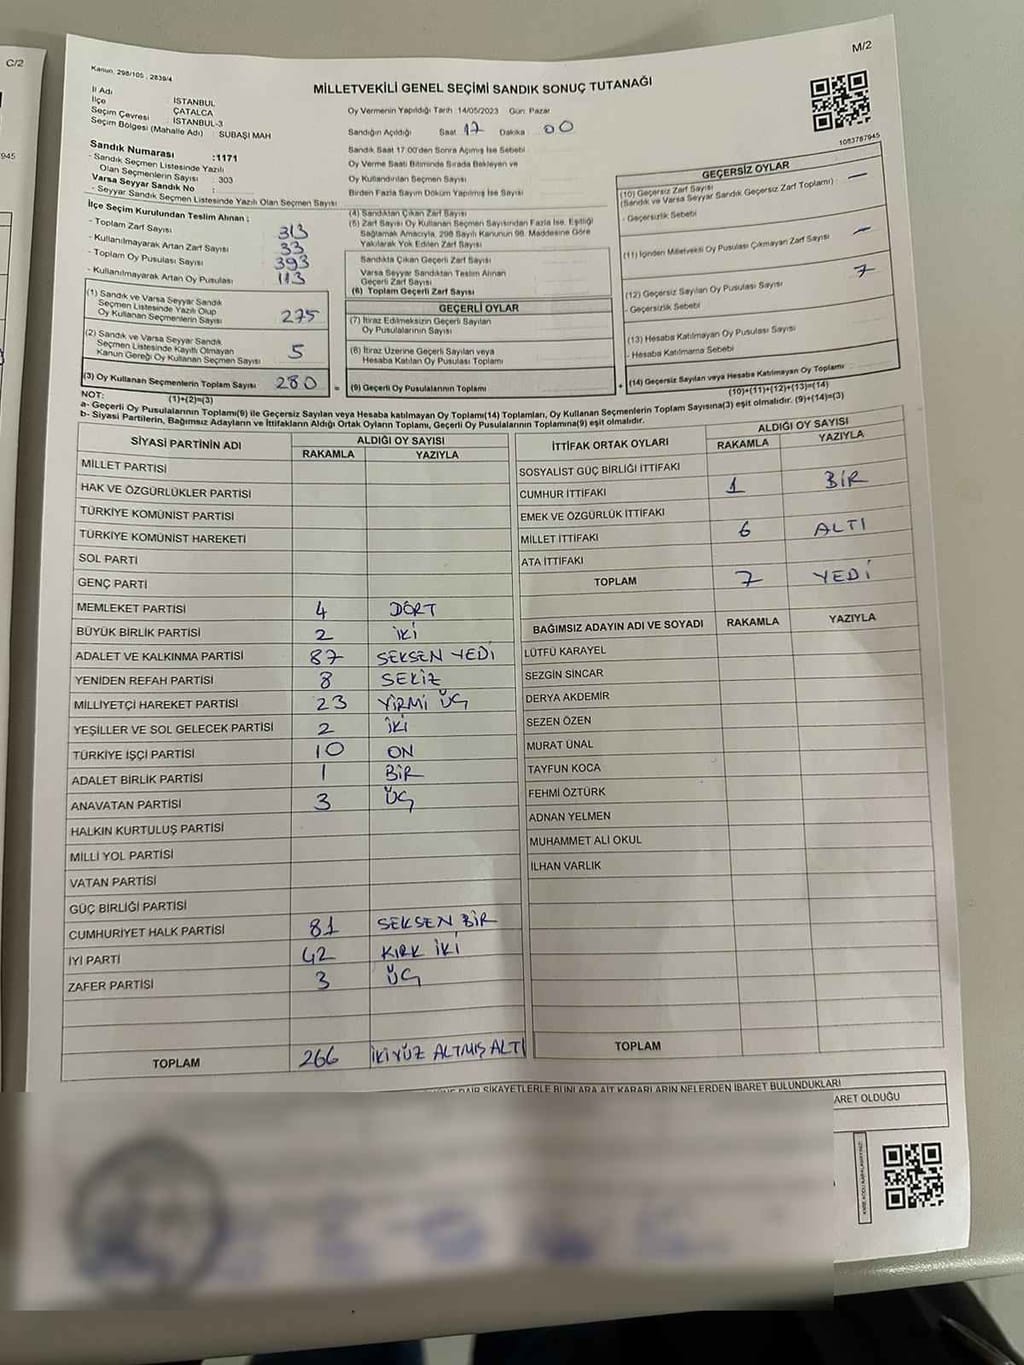 C/2
M/2
Kanun: 298/105 , 2839/4
MİLLETVEKİLİ GENEL SEÇİMİ SANDIK SONUÇ TUTANAĞI
İl Adı : İSTANBUL
İlçe : ÇATALCA
Seçim Çevresi : İSTANBUL-3
Seçim Bölgesi (Mahalle Adı) : SUBAŞI MAH
Oy Vermenin Yapıldığı Tarih :14/05/2023 Gün: Pazar
Sandığın Açıldığı Saat 17 Dakika 00
Sandık Saat 17:00'den Sonra Açılmış İse Sebebi
Oy Verme Saati Bitiminde Sırada Bekleyen ve
Oy Kullandırılan Seçmen Sayısı
Birden Fazla Sayım Döküm Yapılmış İse Sayısı
1083787945
945
Sandık Numarası :1171
- Sandık Seçmen Listesinde Yazılı
Olan Seçmenlerin Sayısı : 303
Varsa Seyyar Sandık No :
- Seyyar Sandık Seçmen Listesinde Yazılı Olan Seçmen Sayısı
İlçe Seçim Kurulundan Teslim Alınan :
- Toplam Zarf Sayısı 313
- Kullanılmayarak Artan Zarf Sayısı 33
- Toplam Oy Pusulası Sayısı 393
- Kullanılmayarak Artan Oy Pusulası 113
(1) Sandık ve Varsa Seyyar Sandık
Seçmen Listesinde Yazılı Olup
Oy Kullanan Seçmenlerin Sayısı 275
(2) Sandık ve Varsa Seyyar Sandık
Seçmen Listesinde Kayıtlı Olmayan
Kanun Gereği Oy Kullanan Seçmen Sayısı 5
(3) Oy Kullanan Seçmenlerin Toplam Sayısı 280 =
(1)+(2)=(3)
(4) Sandıktan Çıkan Zarf Sayısı
(5) Zarf Sayısı Oy Kullanan Seçmen Sayısından Fazla İse, Eşitliği
Sağlamak Amacıyla, 298 Sayılı Kanunun 98. Maddesine Göre
Yakılarak Yok Edilen Zarf Sayısı
Sandıkta Çıkan Geçerli Zarf Sayısı
Varsa Seyyar Sandıktan Teslim Alınan
Geçerli Zarf Sayısı
(6) Toplam Geçerli Zarf Sayısı
GEÇERLİ OYLAR
(7) İtiraz Edilmeksizin Geçerli Sayılan
Oy Pusulalarının Sayısı
(8) İtiraz Üzerine Geçerli Sayılan veya
Hesaba Katılan Oy Pusulası Toplamı
(9) Geçerli Oy Pusulalarının Toplamı +
GEÇERSİZ OYLAR
(10) Geçersiz Zarf Sayısı
(Sandık ve Varsa Seyyar Sandık Geçersiz Zarf Toplamı) : —
- Geçersizlik Sebebi
(11) İçinden Milletvekili Oy Pusulası Çıkmayan Zarf Sayısı —
(12) Geçersiz Sayılan Oy Pusulası Sayısı 7
- Geçersizlik Sebebi
(13) Hesaba Katılmayan Oy Pusulası Sayısı
- Hesaba Katılmama Sebebi
(14) Geçersiz Sayılan veya Hesaba Katılmayan Oy Toplamı
(10)+(11)+(12)+(13)=(14)
NOT:
a- Geçerli Oy Pusulalarının Toplamı(9) ile Geçersiz Sayılan veya Hesaba katılmayan Oy Toplamı(14) Toplamları, Oy Kullanan Seçmenlerin Toplam Sayısına(3) eşit olmalıdır. (9)+(14)=(3)
b- Siyasi Partilerin, Bağımsız Adayların ve İttifakların Aldığı Ortak Oyların Toplamı, Geçerli Oy Pusulalarının Toplamına(9) eşit olmalıdır.
SİYASİ PARTİNİN ADI ALDIĞI OY SAYISI
RAKAMLA YAZIYLA
MİLLET PARTİSİ
HAK VE ÖZGÜRLÜKLER PARTİSİ
TÜRKİYE KOMÜNİST PARTİSİ
TÜRKİYE KOMÜNİST HAREKETİ
SOL PARTİ
GENÇ PARTİ
MEMLEKET PARTİSİ 4 DÖRT
BÜYÜK BİRLİK PARTİSİ 2 İKİ
ADALET VE KALKINMA PARTİSİ 87 SEKSEN YEDİ
YENİDEN REFAH PARTİSİ 8 SEKİZ
MİLLİYETÇİ HAREKET PARTİSİ 23 YİRMİ ÜÇ
YEŞİLLER VE SOL GELECEK PARTİSİ 2 İKİ
TÜRKİYE İŞÇİ PARTİSİ 10 ON
ADALET BİRLİK PARTİSİ 1 BİR
ANAVATAN PARTİSİ 3 ÜÇ
HALKIN KURTULUŞ PARTİSİ
MİLLİ YOL PARTİSİ
VATAN PARTİSİ
GÜÇ BİRLİĞİ PARTİSİ
CUMHURİYET HALK PARTİSİ 81 SEKSEN BİR
İYİ PARTİ 42 KIRK İKİ
ZAFER PARTİSİ 3 ÜÇ
TOPLAM 266 İKİYÜZ ALTMIŞ ALTI
İTTİFAK ORTAK OYLARI ALDIĞI OY SAYISI
RAKAMLA YAZIYLA
SOSYALİST GÜÇ BİRLİĞİ İTTİFAKI
CUMHUR İTTİFAKI 1 BİR
EMEK VE ÖZGÜRLÜK İTTİFAKI
MİLLET İTTİFAKI 6 ALTI
ATA İTTİFAKI
TOPLAM 7 YEDİ
BAĞIMSIZ ADAYIN ADI VE SOYADI RAKAMLA YAZIYLA
LÜTFÜ KARAYEL
SEZGİN SİNCAR
DERYA AKDEMİR
SEZEN ÖZEN
MURAT ÜNAL
TAYFUN KOCA
FEHMİ ÖZTÜRK
ADNAN YELMEN
MUHAMMET ALİ OKUL
İLHAN VARLIK
TOPLAM
DAİR ŞİKAYETLERLE BUNLARA AİT KARARLARIN NELERDEN İBARET BULUNDUKLARI
ARET OLDUĞU